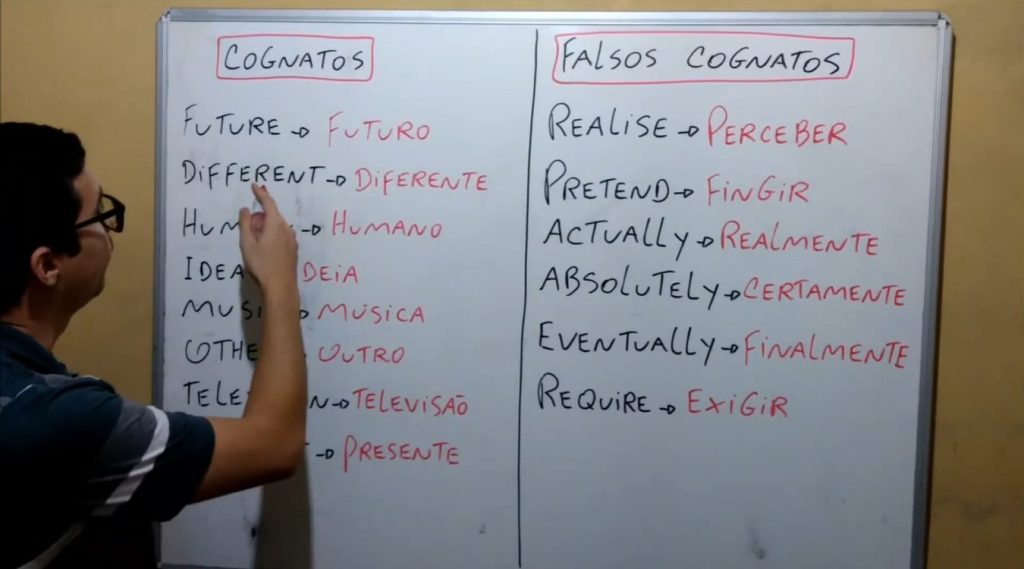 COGNATOS
FUTURE → FUTURO
DIFFERENT → DIFERENTE
→ HUMANO
IDEA
→ MÚSICA
OUTRO
→ TELEVISÃO
→ PRESENTE
FALSOS COGNATOS
REALISE → PERCEBER
PRETEND → FINGIR
ACTUALLY → REALMENTE
ABSOLUTELY → CERTAMENTE
EVENTUALLY → FINALMENTE
REQUIRE → EXIGIR